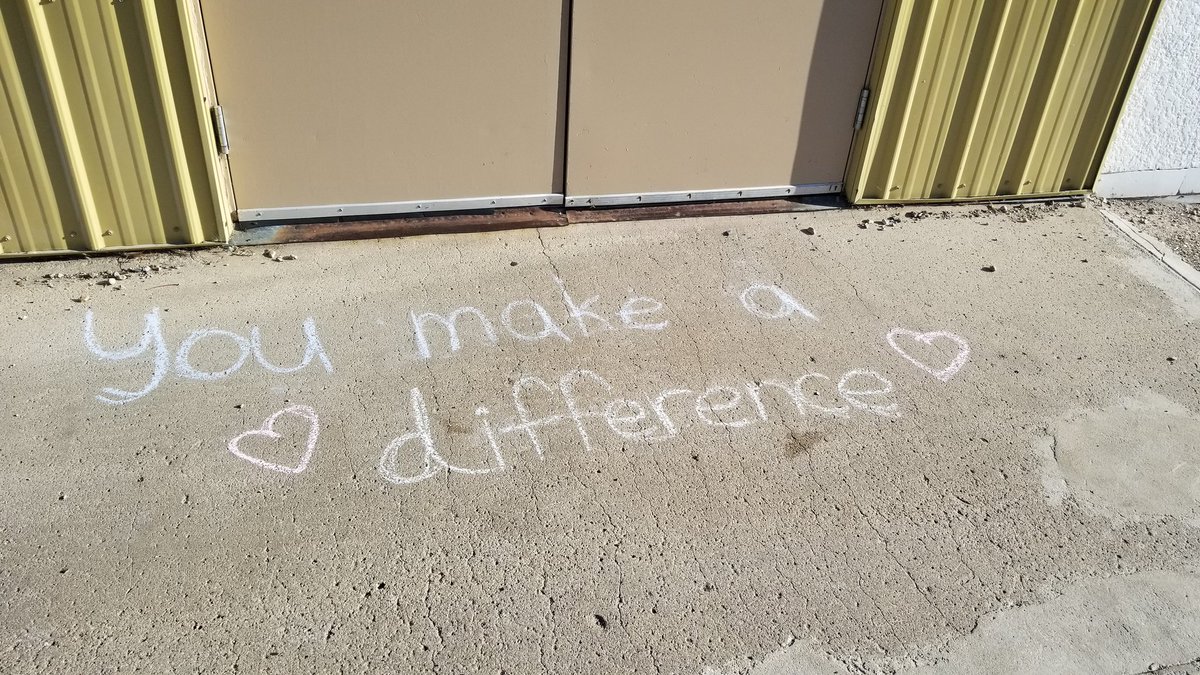 You make a
difference